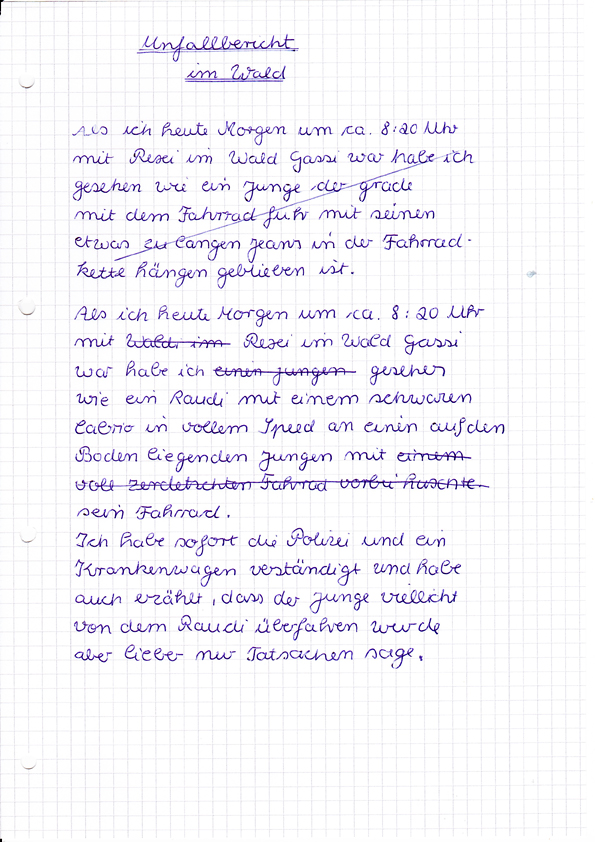 Unfallbericht
im Wald
Als ich heute Morgen um ca. 8:20 Uhr
mit Resei im Wald Gassi war habe ich
gesehen wie ein Junge der grade
mit dem Fahrrad fuhr mit seinen
etwas zu langen Jeans in der Fahrrad-
kette hängen geblieben ist.
Als ich heute Morgen um ca. 8:20 Uhr
mit Wald im Resei im Wald Gassi
war habe ich einen jungen gesehen
wie ein Raudi mit einem schwaren
Cabrio in vollem Speed an einen auf den
Boden liegenden Jungen mit einem
voll Fahrrad vorbei huschte.
sein Fahrrad.
Ich habe sofort die Polizei und ein
Krankenwagen verständigt und habe
auch erzählt, dass der Junge vielleicht
von dem Raudi überfahren wurde
aber lieber nur Tatsachen sage.